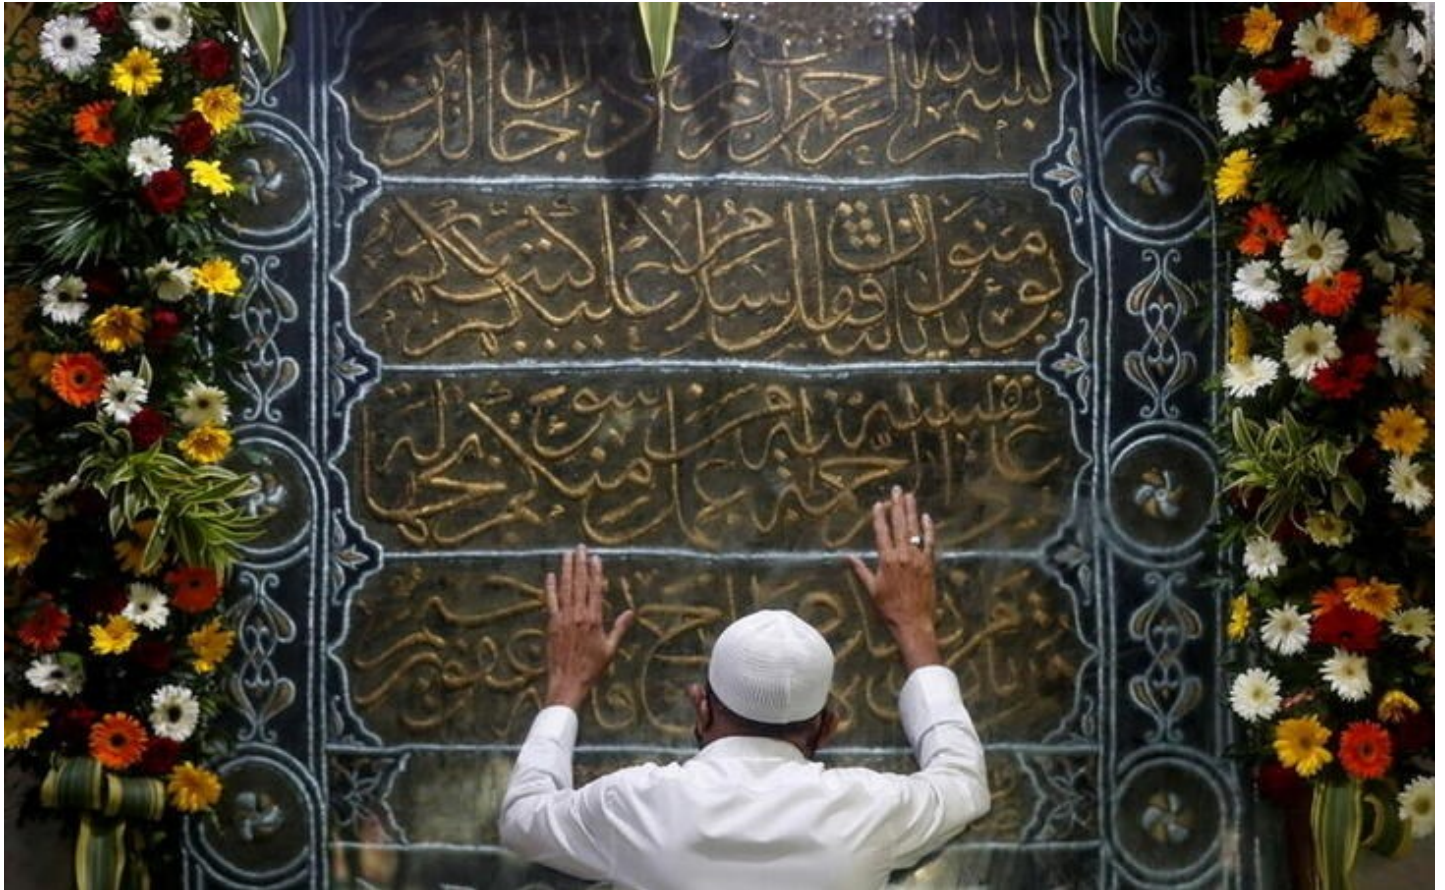 بسم الله الرحمن الرحيم واذا جاك الذين
يؤمنون باياتنا فقل سلام عليكم كتب ربكم
على نفسه الرحمة انه من عمل منكم سوءا بجهالة
ثم تاب من واصلح فانه غفور رحيم